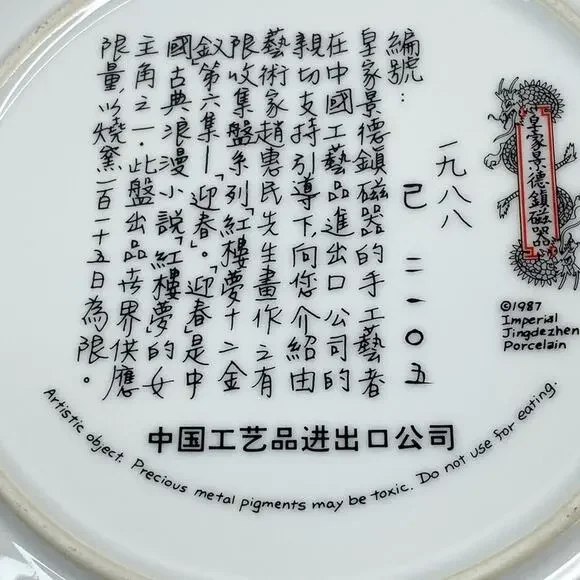 皇家景德鎮磁器
©1987
Imperial
Jingdezhen
Porcelain
一九八八
編號: 己 二一〇五
皇家景德鎮磁器的手工藝者
在中國工藝品進出口公司的
親切支持引導下,向您介紹由
藝術家趙惠民先生畫作之有
限收集盤系列「紅樓夢十二金
釵」第六集—「迎春」。「迎春」是中
國古典浪漫小說「紅樓夢」的女
主角之一.此盤出品世界供應
限量,以燒窯一百一十五日為限。
中国工艺品进出口公司
Artistic object. Precious metal pigments may be toxic. Do not use for eating.